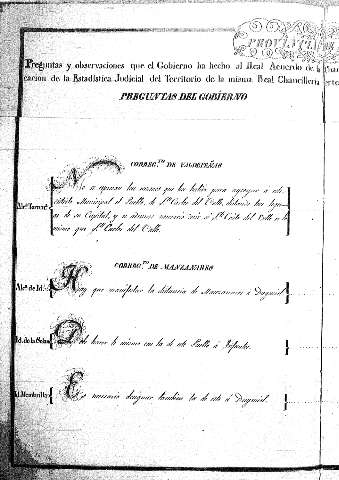 PROVINCIA DE
Preguntas y observaciones que el Gobierno ha hecho al Real Acuerdo de la
cacion de la Estadística Judicial del Territorio de la misma Real Chancillería
PREGUNTAS DEL GOBIERNO
CORREG.TO DE VALDEPEÑAS
No se expresan las razones que ha habido para agregar a este
distrito Municipal el Pueblo de S.n Carlos del Valle, distando tres leguas
de su Capital, y se
mismo que S.n Carlos del Valle.
CORREG.TO DE MANZANARES
Alc.a de Id. Hay que manifestar la distancia de Manzanares á Daymiel.
Id. de la Solana Debe hacer lo mismo con la de este Pueblo á Infantes.
Id. Membrilla Es necesario designar tambien la de este á Daymiel.